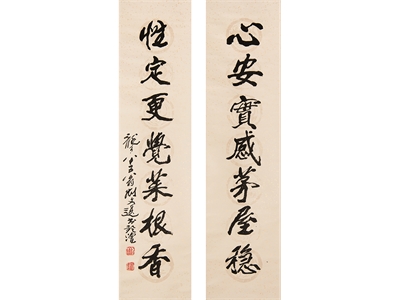 心安實感茅屋穩
性定更覺菜根香